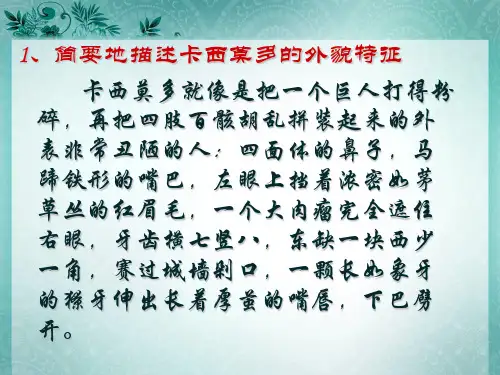 1、简要地描述卡西莫多的外貌特征
卡西莫多就像是把一个巨人打得粉
碎，再把四肢百骸胡乱拼装起来的外
表非常丑陋的人：四面体的鼻子，马
蹄铁形的嘴巴，左眼上挡着浓密如茅
草丛的红眉毛，一个大肉瘤完全遮住
右眼，牙齿横七竖八，东缺一块西少
一角，赛过城墙剁口，一颗长如象牙
的獠牙伸出长着厚茧的嘴唇，下巴劈
开。